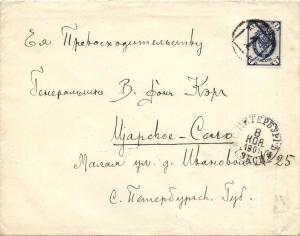 Ея Превосходительству
Генеральше В. фонъ Кэрг
Царское-Село
Малая ул. д. Ивановой 25
С. Петербургск. Губ.
8
НОЯ